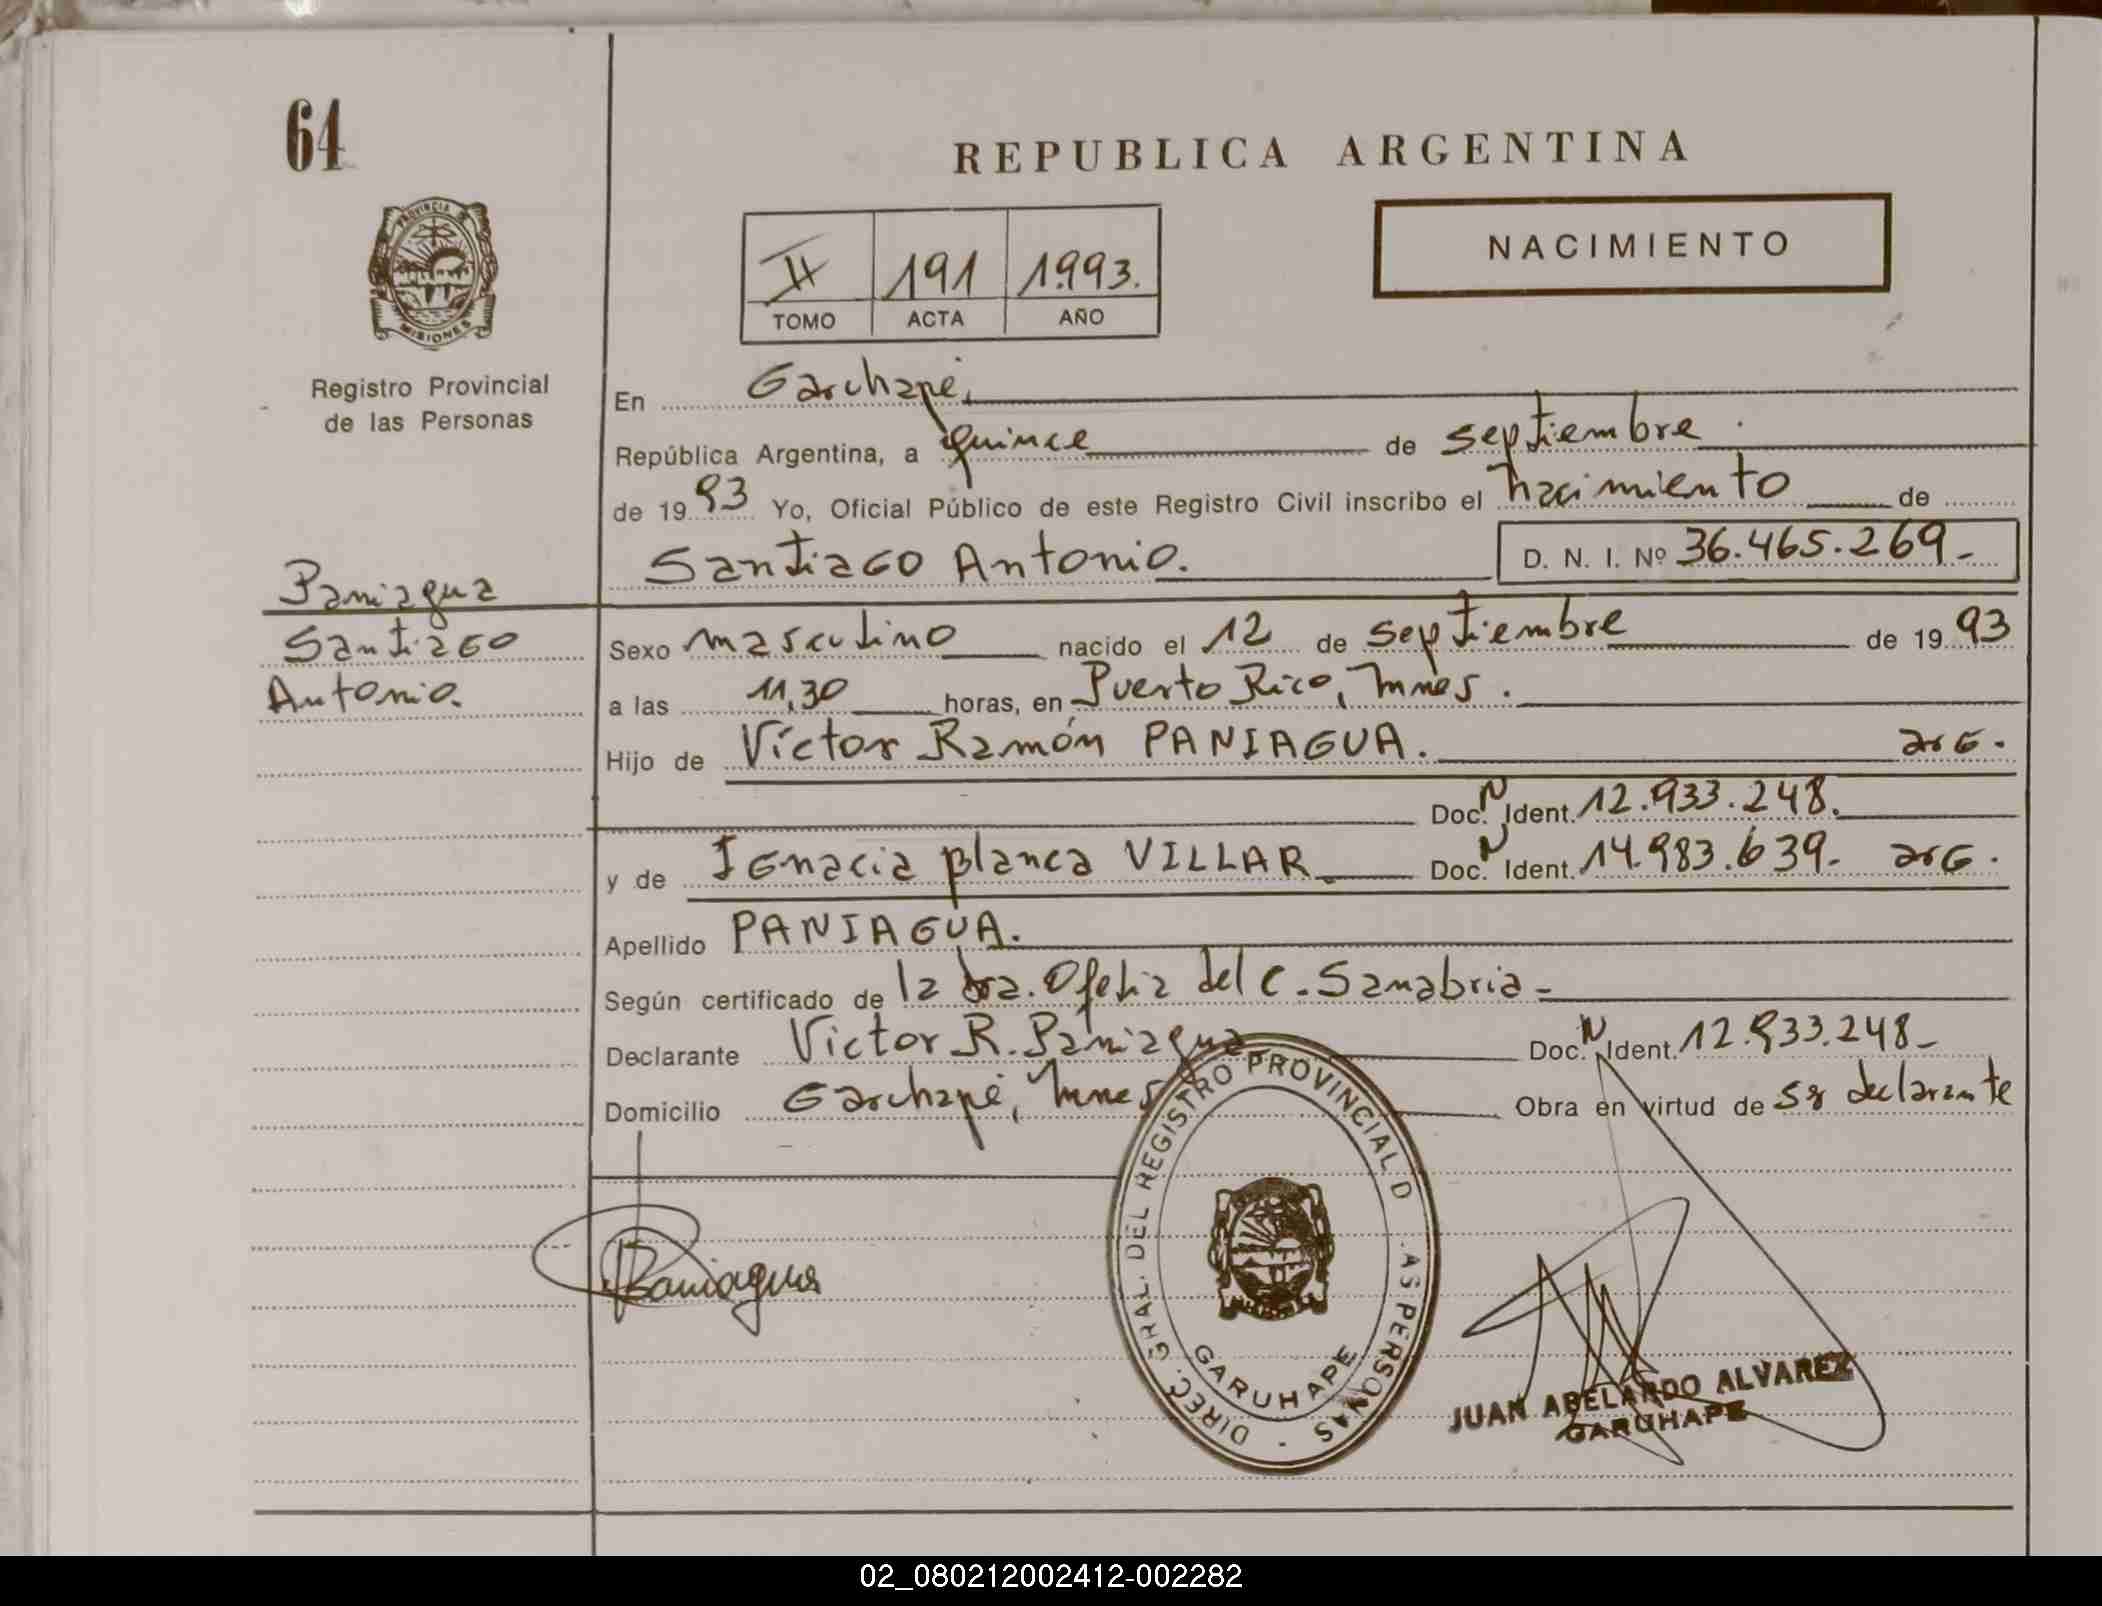 64
REPUBLICA ARGENTINA
PROVINCIA DE
MISIONES
Registro Provincial
de las Personas
II 191 1.993.
TOMO ACTA AÑO
NACIMIENTO
En Garuhapé,
República Argentina, a quince de septiembre.
de 19 93 Yo, Oficial Público de este Registro Civil inscribo el nacimiento de
Santiago Antonio. D. N. I. Nº 36.465.269-
Paniagua
Santiago
Antonio.
Sexo masculino nacido el 12 de septiembre de 19 93
a las 11,30 horas, en Puerto Rico, Mnes.
Hijo de Víctor Ramón PANIAGUA. arg.
Doc. N Ident. 12.933.248.
y de Ignacia Blanca VILLAR Doc. N Ident. 14.983.639- arg.
Apellido PANIAGUA.
Según certificado de la dra. Ofelia del C. Sanabria-
Declarante Victor R. Paniagua Doc. N Ident. 12.933.248-
Domicilio Garuhapé, Mnes Obra en virtud de ser declarante
Paniagua
DIREC. GRAL. DEL REGISTRO PROVINCIAL D AS PERSONAS -
GARUHAPE
JUAN ABELARDO ALVAREZ
GARUHAPE
02_080212002412-002282